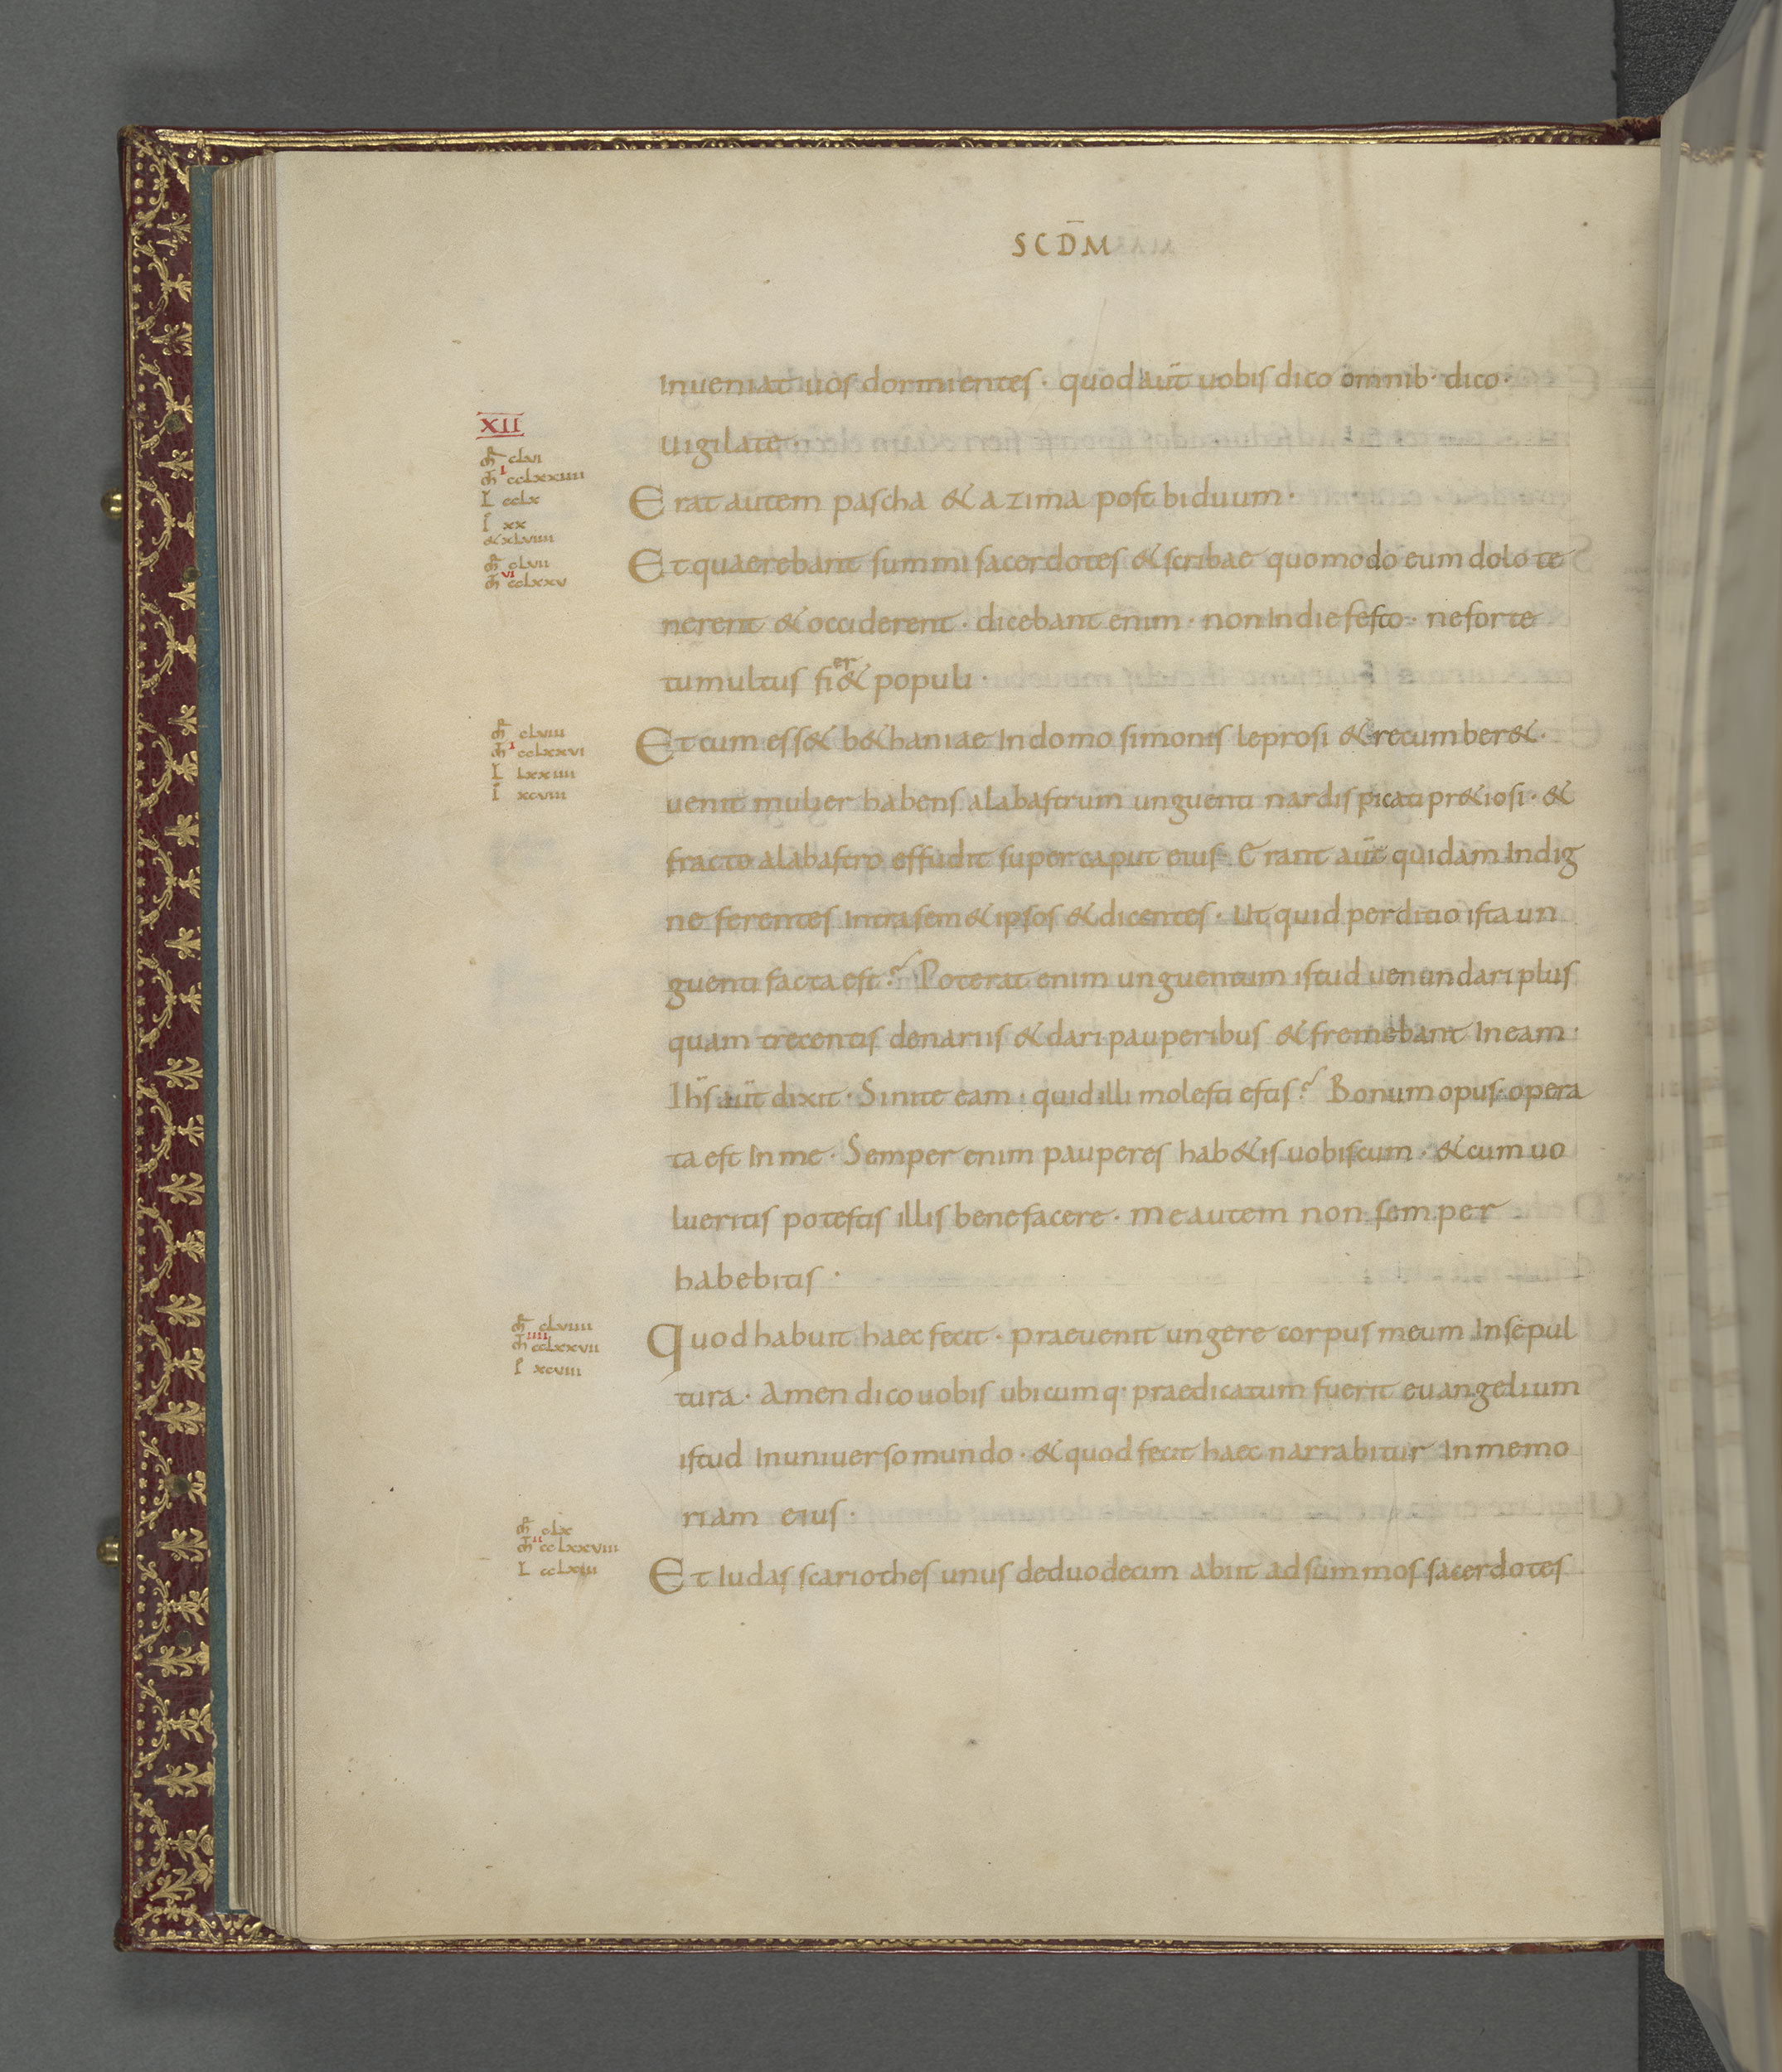 SCD̄M
inueniat uos dormientes · quod aūt uobis dico omnib· dico ·
uigilate ·
XII
M̄R clvi
M̄T I cclxxiiii
L cclx
I xx
& xlviii
Erat autem pascha & azima post biduum ·
M̄R clvii
M̄T VI cclxxv
Et quaerebant summi sacerdotes & scribae quomodo eum dolo te
nerent & occiderent · dicebant enim · non in die festo · ne forte
tumultus fi er & populi ·
M̄R clviii
M̄T I cclxxvi
L lxxiiii
I xcviii
Et cum ess& b&haniae in domo simonis leprosi & recumber& ·
uenit mulier habens alabastrum unguenti nardi spicati pr&iosi · &
fracto alabastro effudit super caput eius · Erant aūt quidam indig
ne ferentes intra sem&ipsos & dicentes · Ut quid perditio ista un
guenti facta est? Poterat enim unguentum istud uenundari plus
quam trecentis denariis & dari pauperibus & fremebant in eam ·
Ih̄s aūt dixit · Sinite eam · quid illi molesti estis? Bonum opus · opera
ta est in me · Semper enim pauperes hab&is uobiscum · & cum uo
lueritis potestis illis benefacere · me autem non semper
habebitis ·
M̄R clviiii
M̄T IIII cclxxvii
I xcviii
Quod habuit haec fecit · praeuenit ungere corpus meum in sepul
tura · Amen dico uobis ubicumq· praedicatum fuerit euangelium
istud in uniuerso mundo · & quod fecit haec narrabitur in memo
riam eius ·
M̄R clx
M̄T II cclxxviii
L cclxiii
Et iudas scariothes unus de duodecim abiit ad summos sacerdotes